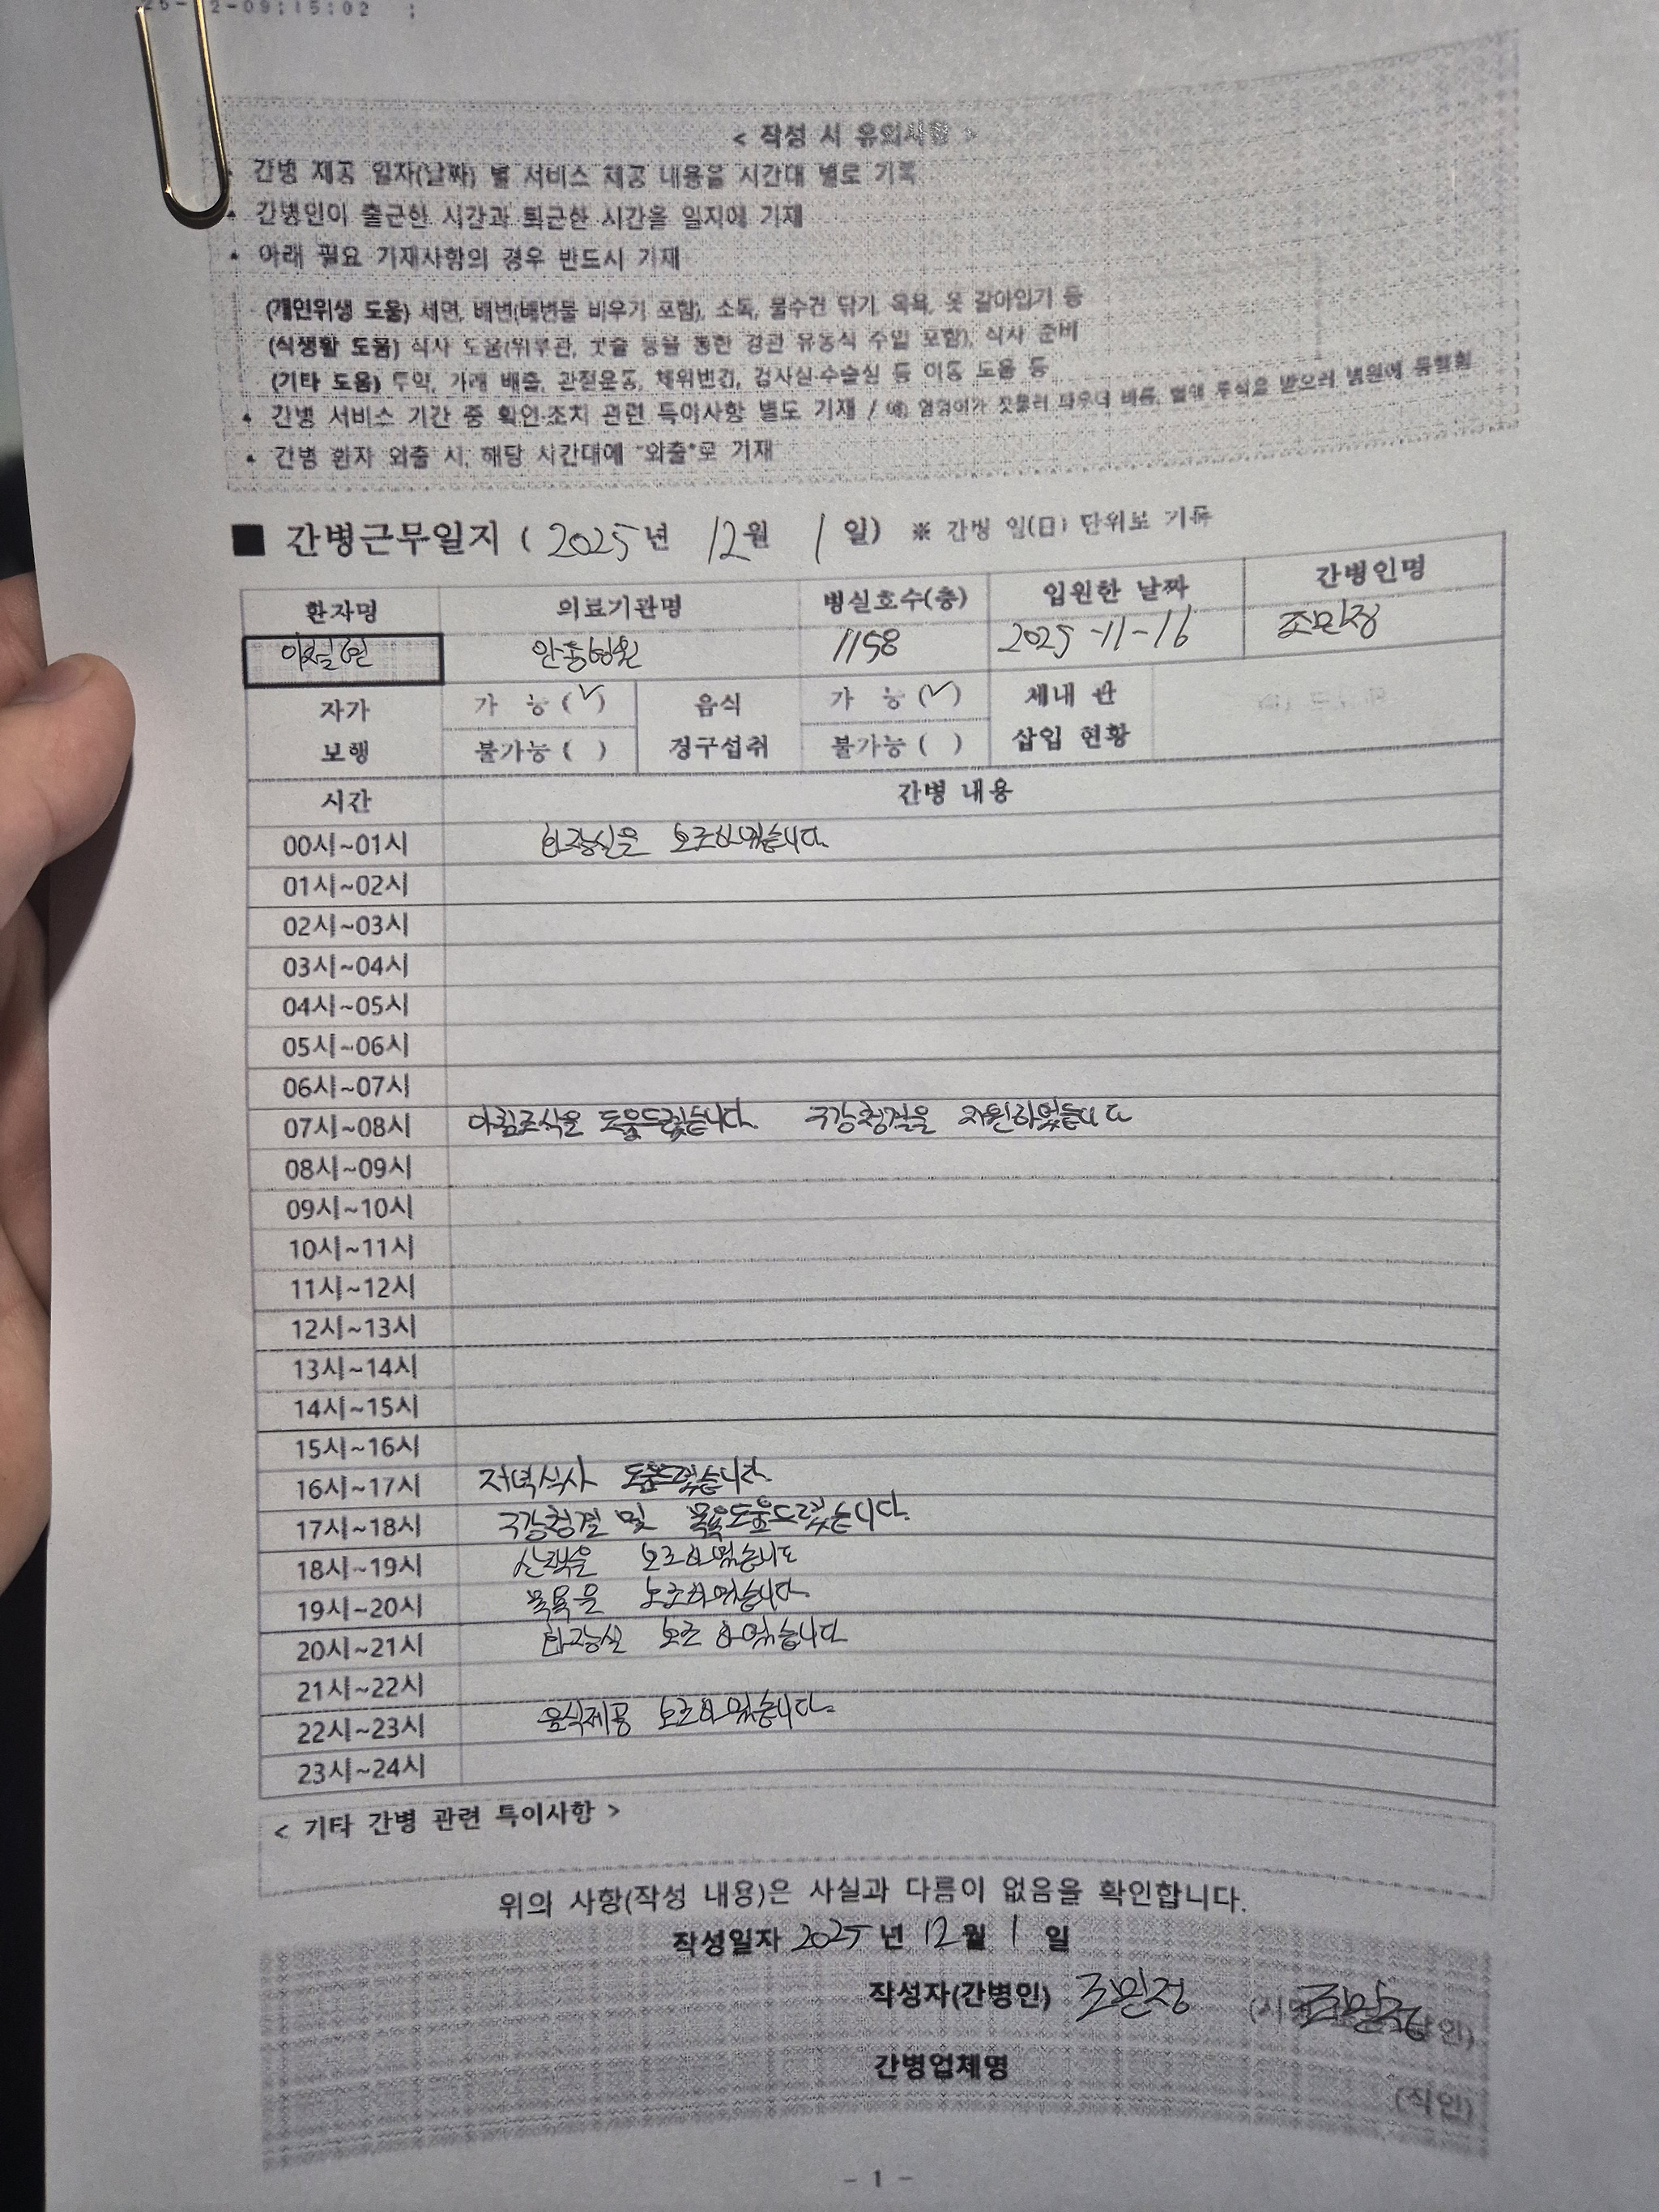 2-09:15:02 ;
< 작성 시 유의사항 >
간병 제공 일자(날짜) 별 서비스 제공 내용을 시간대 별로 기록
간병인이 출근한 시간과 퇴근한 시간을 일지에 기재
아래 필요 기재사항의 경우 반드시 기재
(개인위생 도움) 세면, 배변(배변물 비우기 포함), 소독, 물수건 닦기, 목욕, 옷 갈아입기 등
(식생활 도움) 식사 도움(위루관, 콧줄 등을 통한 경관 유동식 주입 포함), 식사 준비
(기타 도움) 투약, 가래 배출, 관절운동, 체위변경, 검사실·수술실 등 이동 도움 등
간병 서비스 기간 중 확인·조치 관련 특이사항 별도 기재 / 예) 엉덩이가 짓물러 파우더 바름, 혈액 투석을 받으러 병원에 동행함
간병 환자 외출 시, 해당 시간대에 "외출"로 기재
■ 간병근무일지 ( 2025년 12월 1일) ※ 간병 일(日) 단위로 기록
환자명 의료기관명 병실호수(층) 입원한 날짜 간병인명
안동병원 1158 2025-11-16 조민정
자가 보행 가 능 (✓) 불가능 ( ) 음식 경구섭취 가 능 (✓) 불가능 ( ) 체내 관 삽입 현황
시간 간병 내용
00시~01시 화장실을 보조하였습니다
01시~02시
02시~03시
03시~04시
04시~05시
05시~06시
06시~07시
07시~08시 아침조식을 도움드렸습니다. 구강청결을 지원하였습니다
08시~09시
09시~10시
10시~11시
11시~12시
12시~13시
13시~14시
14시~15시
15시~16시
16시~17시 저녁식사 도움드렸습니다.
17시~18시 구강청결 및 목욕도움드렸습니다.
18시~19시 산책을 보조하였습니다
19시~20시 목욕을 보조하였습니다.
20시~21시 화장실 보조하였습니다
21시~22시
22시~23시 음식제공 보조하였습니다.
23시~24시
< 기타 간병 관련 특이사항 >
위의 사항(작성 내용)은 사실과 다름이 없음을 확인합니다.
작성일자 2025년 12월 1일
작성자(간병인) 조민정 조민정
간병업체명
(직인)
- 1 -